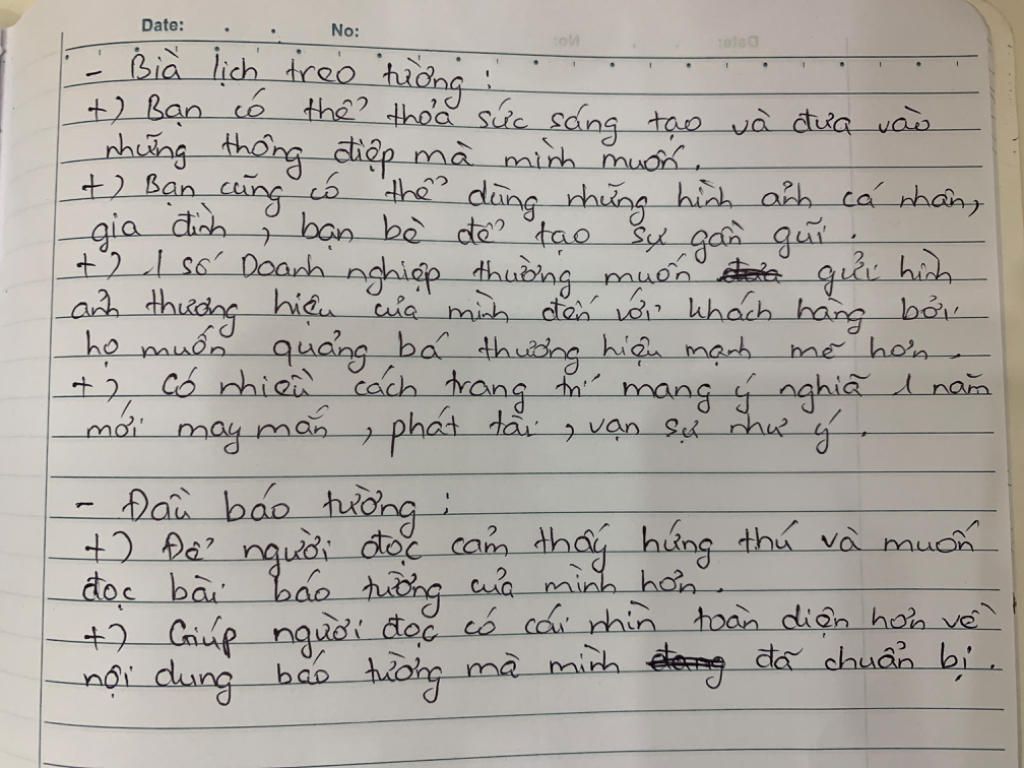 Date: . . No:
- Bìa lịch treo tường :
+) Bạn có thể thoả sức sáng tạo và đưa vào
những thông điệp mà mình muốn.
+) Bạn cũng có thể dùng những hình ảnh cá nhân,
gia đình, bạn bè để tạo sự gần gũi.
+) 1 số Doanh nghiệp thường muốn gửi hình
ảnh thương hiệu của mình đến với khách hàng bởi
họ muốn quảng bá thương hiệu mạnh mẽ hơn.
+) Có nhiều cách trang trí mang ý nghĩa 1 năm
mới may mắn, phát tài, vạn sự như ý.
- Đầu báo tường :
+) Để người đọc cảm thấy hứng thú và muốn
đọc bài báo tường của mình hơn.
+) Giúp người đọc có cái nhìn toàn diện hơn về
nội dung báo tường mà mình đã chuẩn bị.